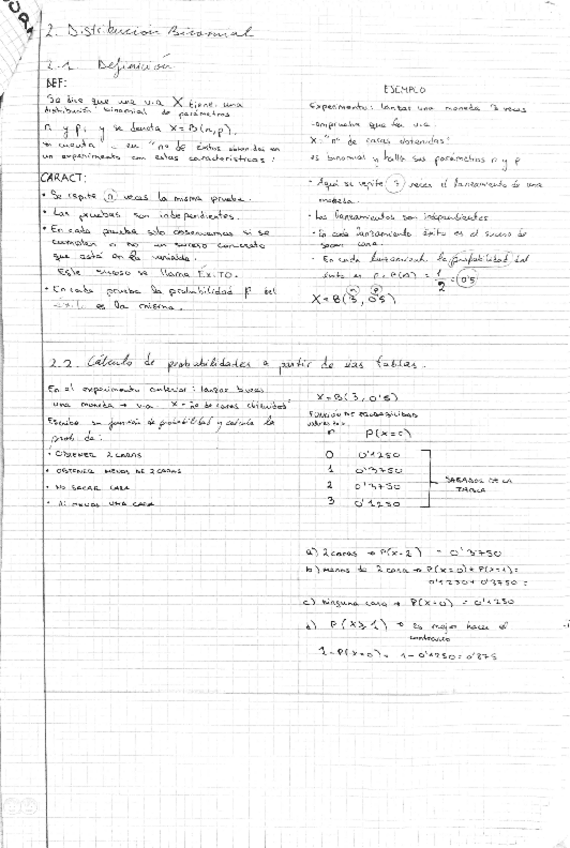 2. Distribución Binomial
2.1 Definición
DEF:
Se dice que una v.a X tiene una
distribución binomial de parámetros
n y p, y se denota X=B(n,p).
"nº de éxitos obtenidos en
un experimento con estas características:
CARACT:
• Se repite n veces la misma prueba.
• Las pruebas son independientes.
• En cada prueba solo observamos si se
cumplen o no un suceso concreto
que está en la variable.
Este suceso se llama ÉXITO.
• En cada prueba la probabilidad p del
éxito es la misma.
EJEMPLO
Experimento: lanzar una moneda 3 veces
comprueba que la v.a.
X: "nº de caras obtenidas"
es binomial y halla sus parámetros n y p
- Aquí se repite 3 veces el lanzamiento de una
moneda.
- Los lanzamientos son independientes
- En cada lanzamiento éxito es el suceso de
sacar cara.
- En cada lanzamiento la probabilidad del
éxito es p. P(A) = 1/2 = 0'5
X=B(3, 0'5)
2.2. Cálculo de probabilidades a partir de las tablas.
En el experimento anterior: lanzar 3 veces
una moneda → v.a. X= nº de caras obtenidas
Escribe su función de probabilidad y calcula la
prob. de:
• OBTENER 2 CARAS
• OBTENER MENOS DE 2 CARAS
• NO SACAR CARA
• AL MENOS UNA CARA
X=B(3, 0'5)
FUNCIÓN DE PROBABILIDAD
P(X=r)
0 0'1250
1 0'3750
2 0'3750
3 0'1250
SACADOS DE LA
TABLA
a) 2 caras → P(X=2) = 0'3750
b) menos de 2 cara → P(X=0)+P(X=1)=
0'1250+0'3750=
c) ninguna cara → P(X=0) = 0'1250
d) P(X≥1) → Es mejor hacer el
contrario
1-P(X=0) = 1-0'1250=0'875